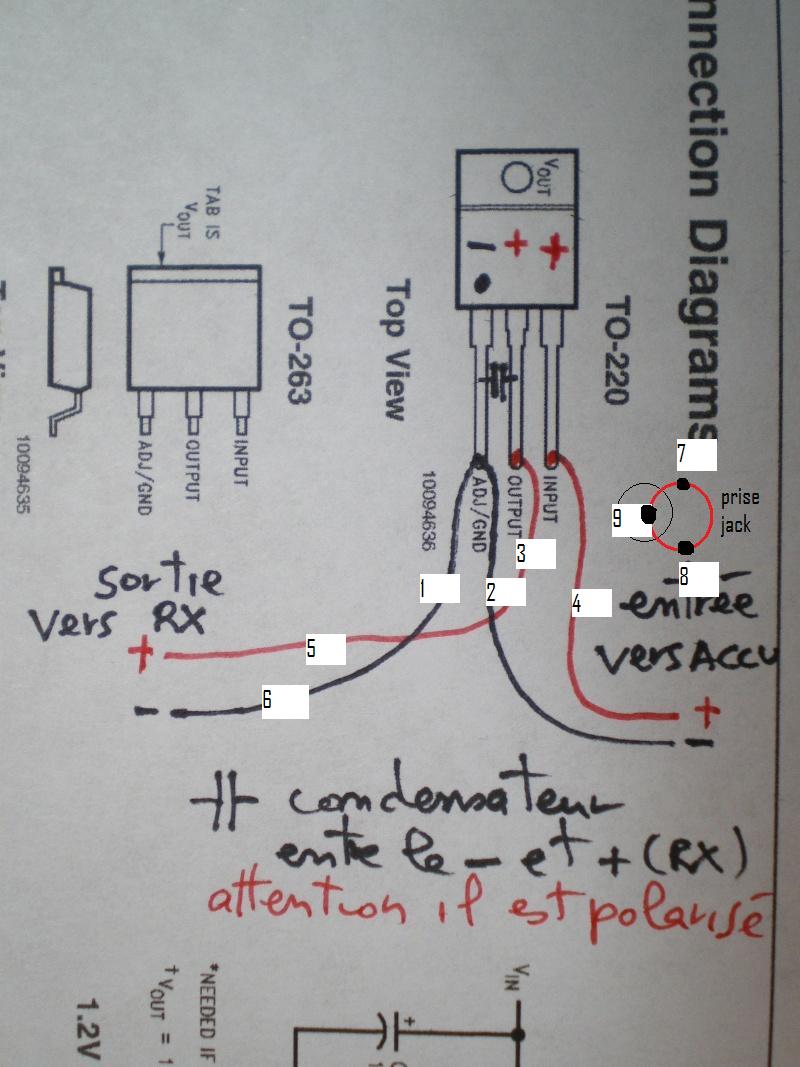 nnection Diagrams
TO-220
V OUT
+
+
-
INPUT
OUTPUT
ADJ/GND
10094636
Top View
TO-263
TAB IS
V OUT
INPUT
OUTPUT
ADJ/GND
10094635
7
prise
jack
9
8
3
1
2
4
5
6
entrée
vers Accu
+
-
sortie
vers RX
+
-
condensateur
entre le - et + (RX)
attention il est polarisé
VIN
+
*NEEDED IF
†VOUT = 1
1.2V